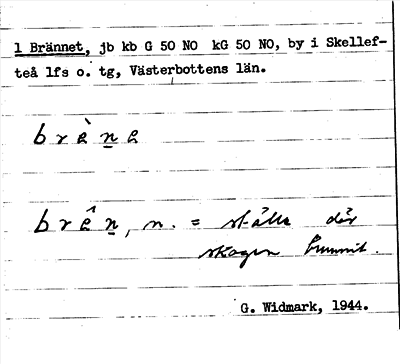 1 Brännet, jb kb G 50 NO kG 50 NO, by i Skellef-
teå lfs o. tg, Västerbottens län.
brὲn̲e
brên̲, n. = ställe där
skogen brunnit.
G. Widmark, 1944.